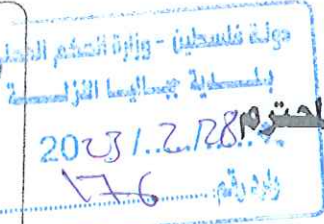 دولة فلسطين - وزارة الحكم المحلي
بلدية جباليا النزلة
المحترم
2023/2/28
وارد رقم: 176